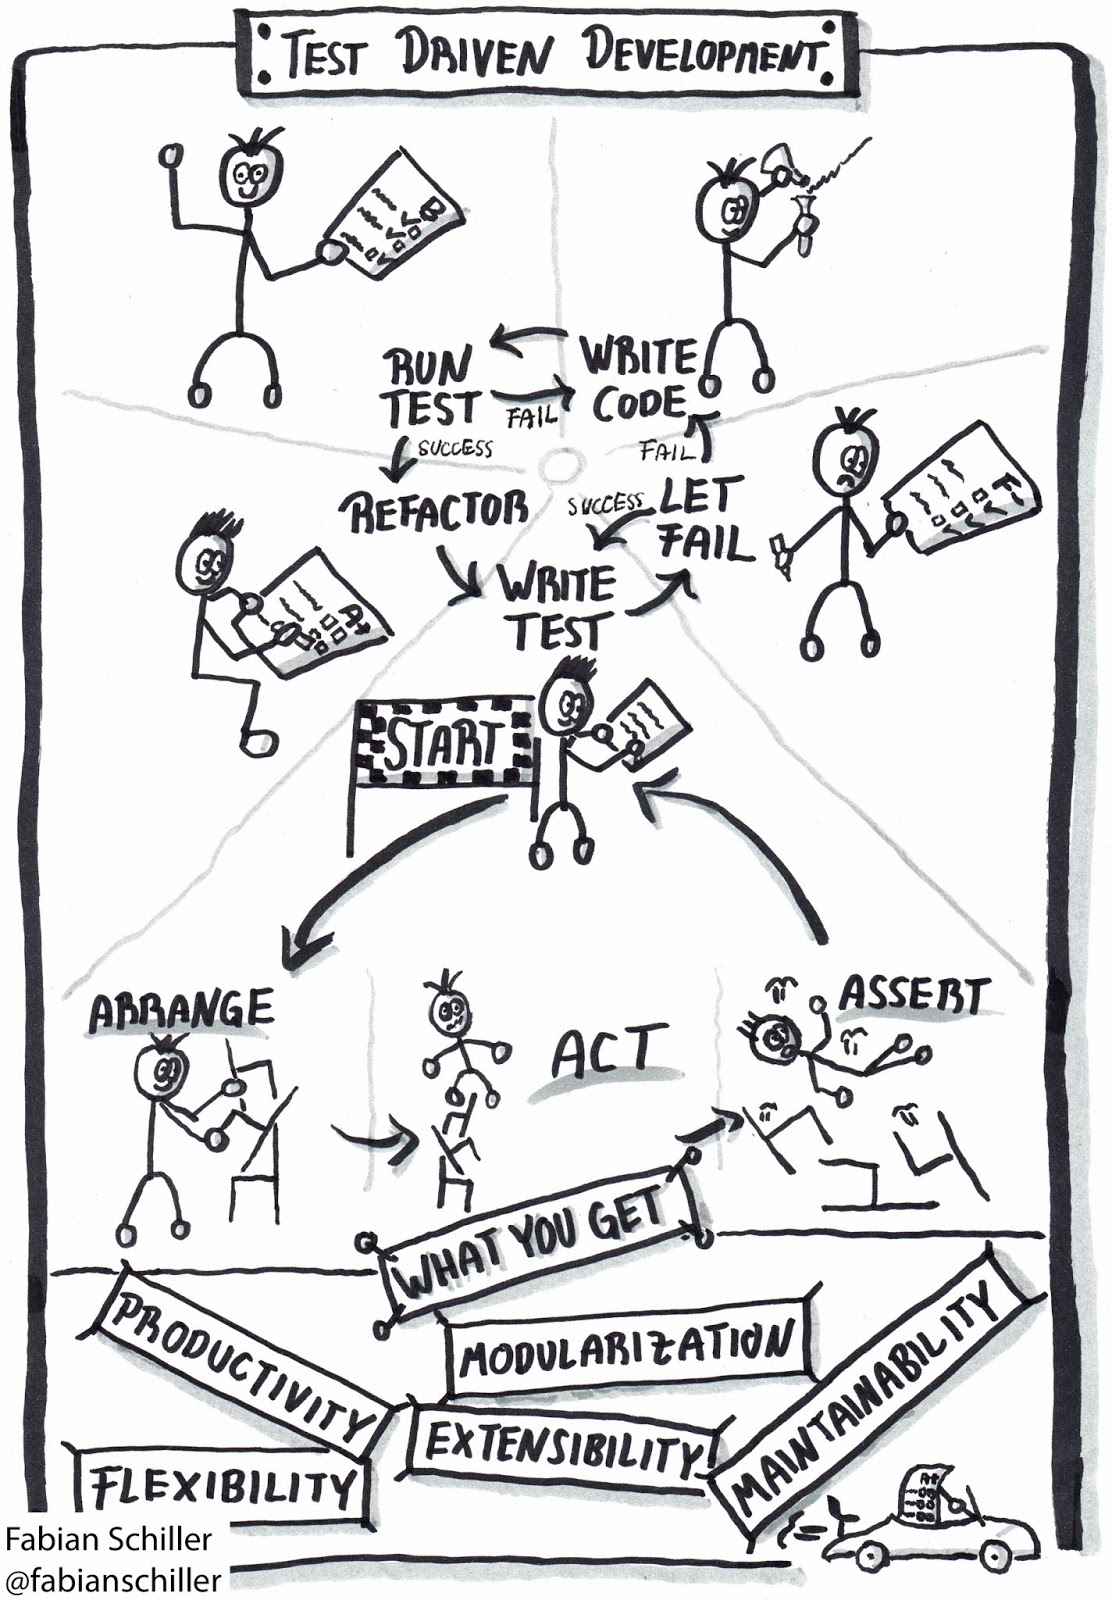 TEST DRIVEN DEVELOPMENT
B
RUN
TEST
WRITE
CODE
FAIL
SUCCESS
FAIL
REFACTOR
SUCCESS
LET
FAIL
F-
WRITE
TEST
A+
START
ARRANGE
ACT
ASSERT
WHAT YOU GET
PRODUCTIVITY
MODULARIZATION
MAINTAINABILITY
EXTENSIBILITY
FLEXIBILITY
A+
Fabian Schiller
@fabianschiller